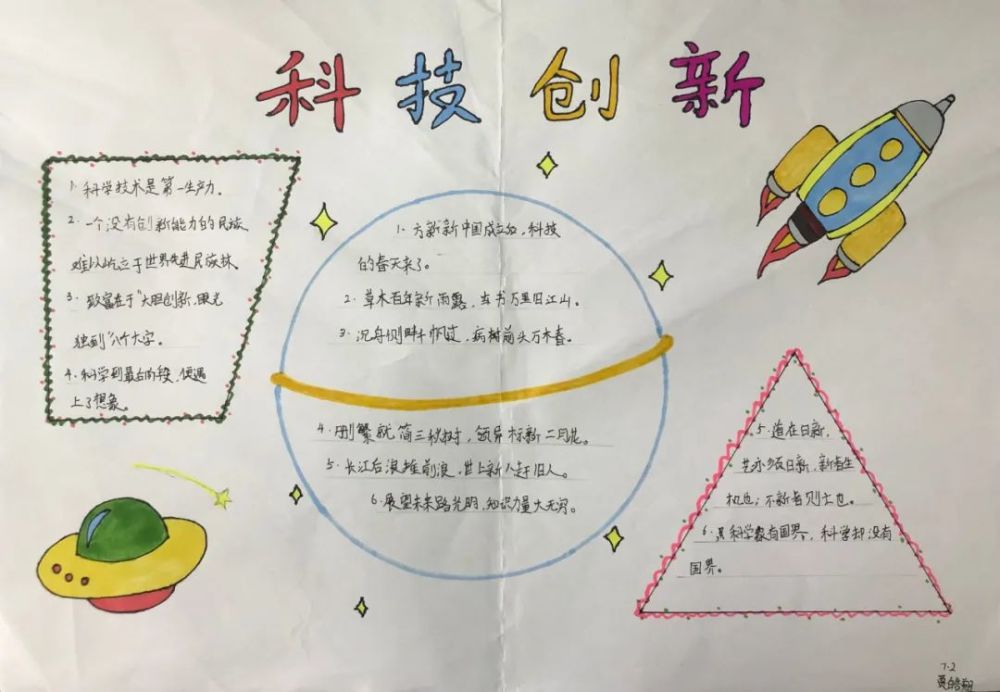 科技创新
1. 科学技术是第一生产力。
2. 一个没有创新能力的民族
难以屹立于世界先进民族林
3. 致富在于"大胆创新,眼光
独到"八个大字。
4. 科学到最后阶段,便遇
上了想象。
1. 新中国成立,科技
的春天来了。
2. 草木百年新雨露,车书万里旧江山。
3. 沉舟侧畔千帆过,病树前头万木春。
4. 删繁就简三秋树,领异标新二月花。
5. 长江后浪推前浪,世上新人赶旧人。
6. 展望未来路光明,知识力量大无穷。
5. 道在日新,
艺亦须日新,新者生
机也;不新者则亡也。
6. 科学家有国界,科学却没有
国界。
7.2